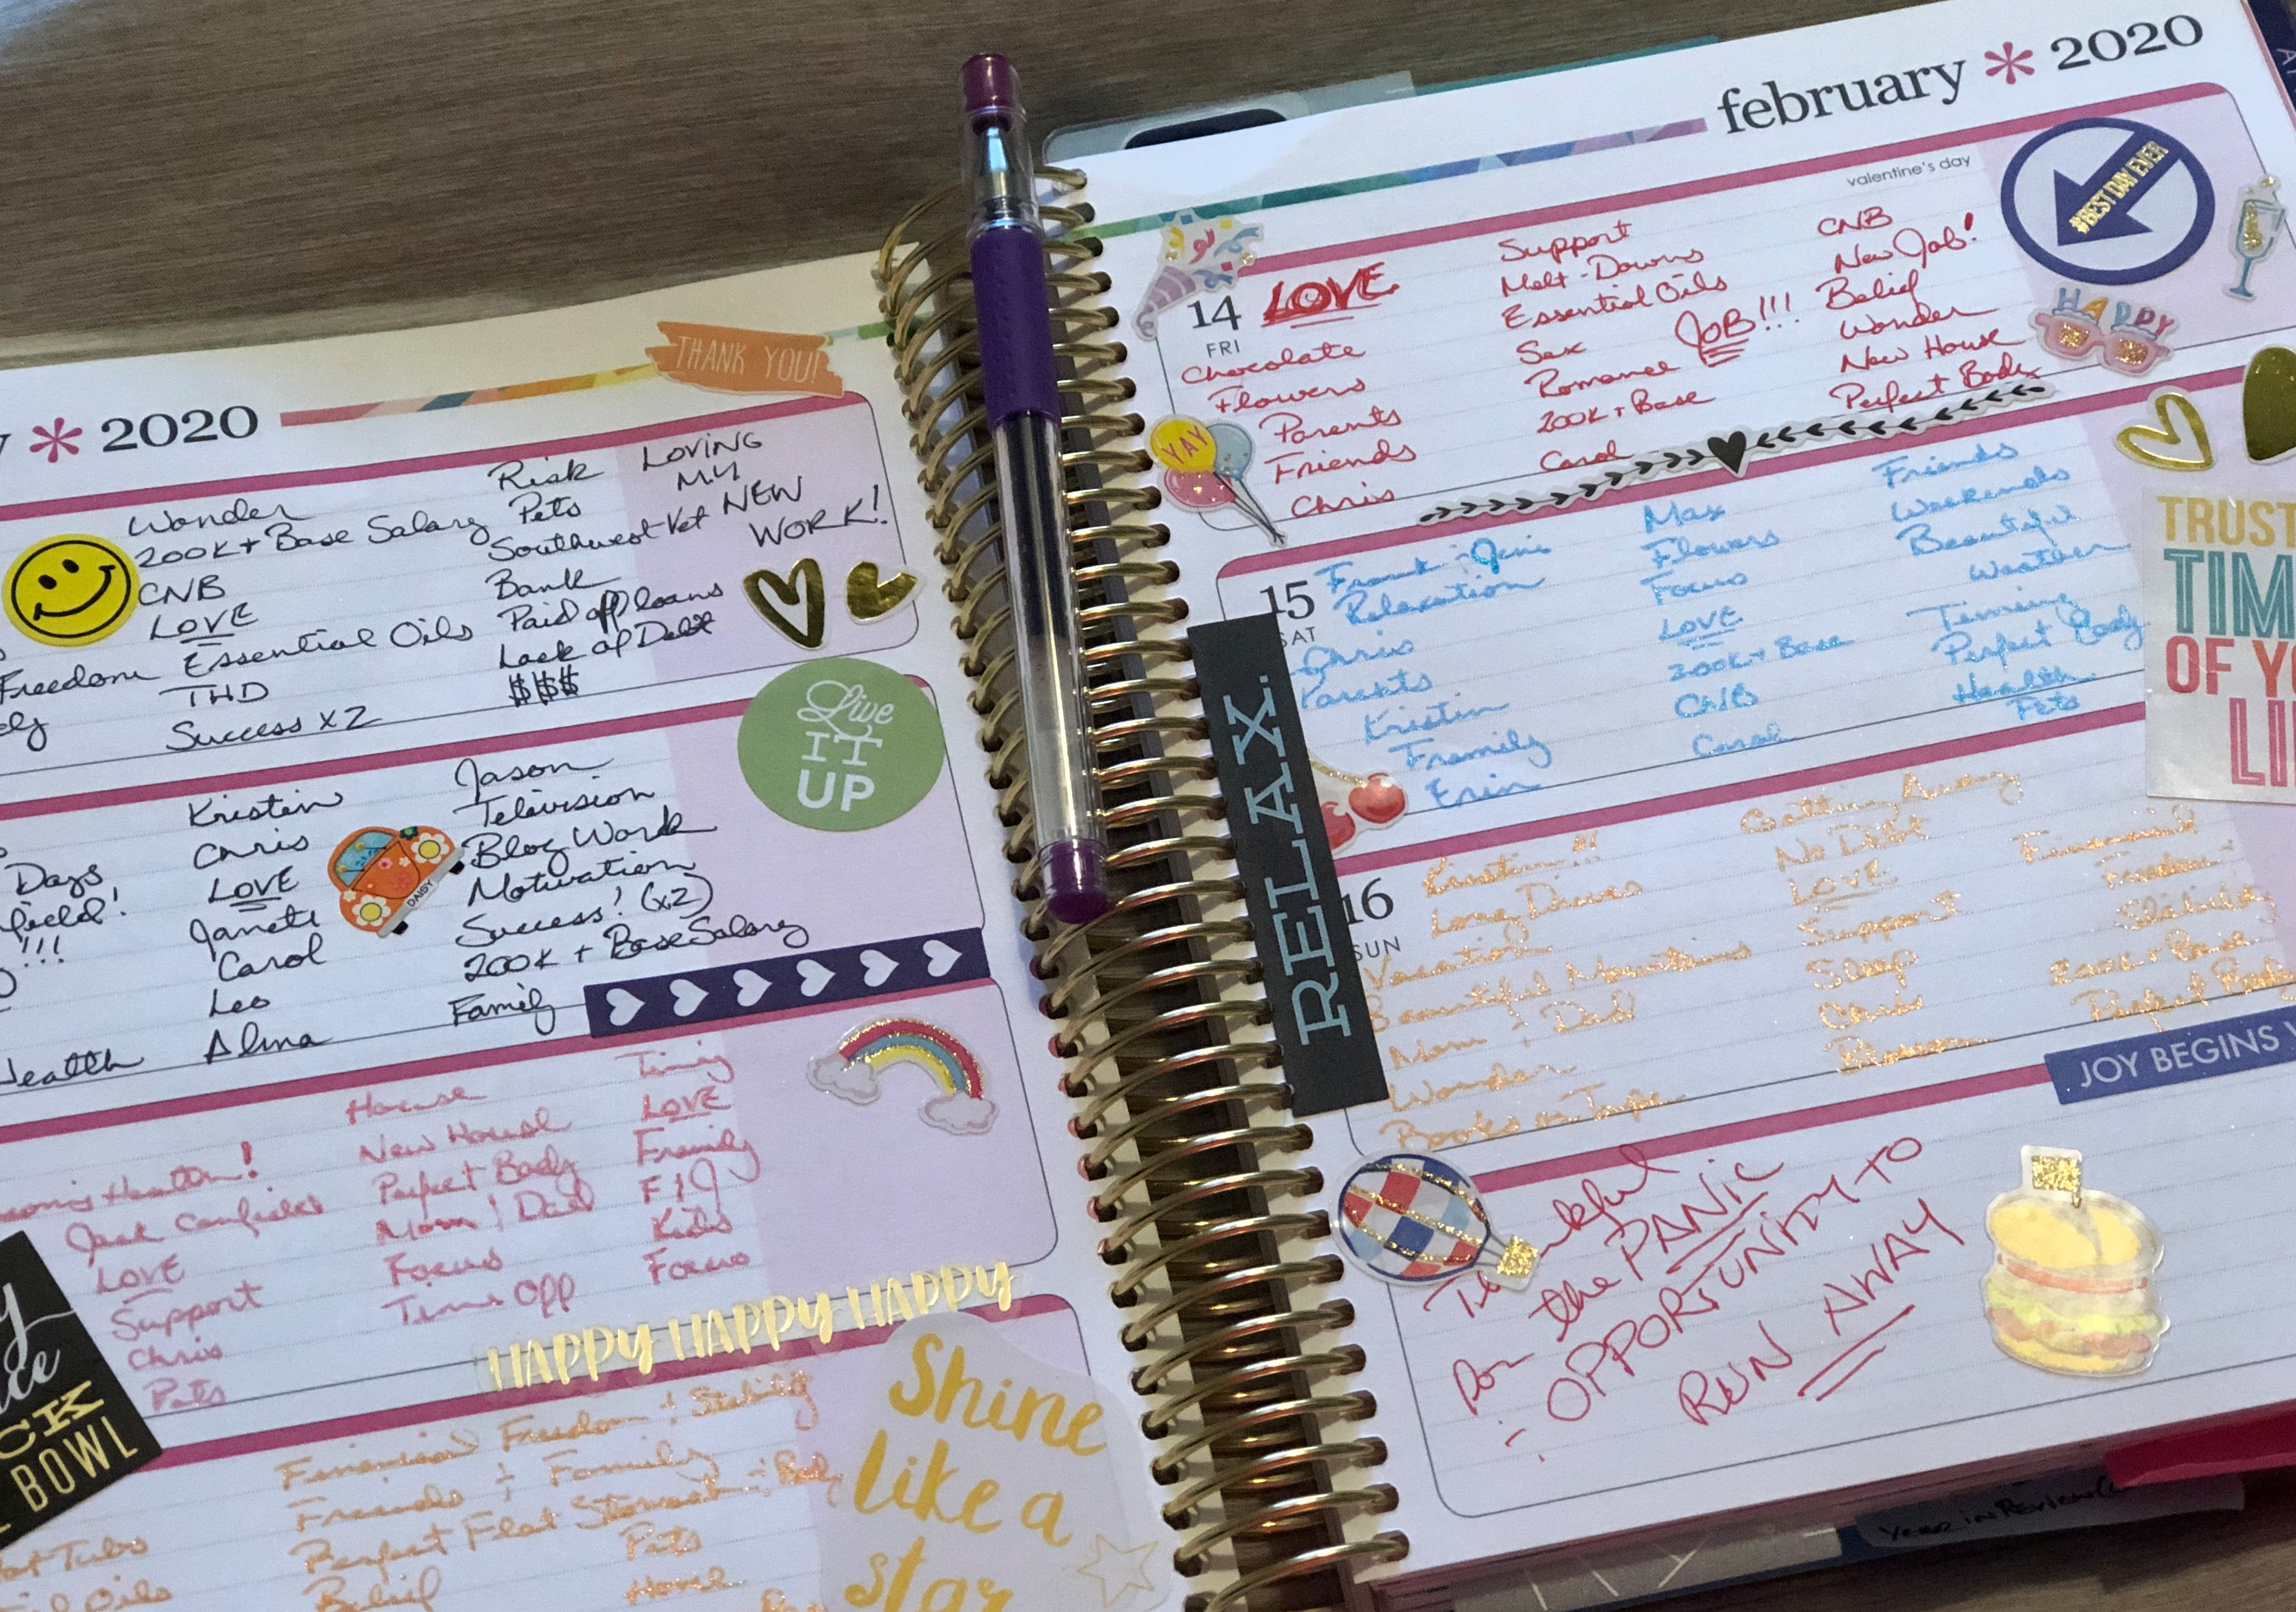 2020
THANK YOU!
Wonder
200K + Base Salary
CNB
LOVE
Essential Oils
THD
Success x 2
Freedom
Risk
Pets
Southwest Vet
Bank
Paid off loans
Lack of Debt
$$$
LOVING
MY
NEW
WORK!
Live
IT
UP
Days
!!!
Health
Kristin
Chris
LOVE
Janeti
Carol
Leo
Alma
DAISY
Jason
Television
Blog Work
Motivation
Success! (x2)
200K + Base Salary
Family
Health!
Jack Canfield
LOVE
Support
Chris
Pets
House
New House
Perfect Body
Mom & Dad
Focus
Time Off
Timing
LOVE
Family
F & J
Kids
Focus
HAPPY HAPPY HAPPY
BOWL
Hot Tubs
Oils
Financial Freedom & Stability
Friends & Family
Perfect Flat Stomach & Body
Belief
Pets
Home
Shine
like a
star
february * 2020
valentine's day
14
FRI
LOVE
Chocolate
Flowers
Parents
Friends
Chris
Support
Melt-Downs
Essential Oils
Sex
Romance
200K + Base
Carol
JOB!!!
CNB
New Job!
Belief
Wonder
New House
Perfect Body
#BEST DAY EVER
HAPPY
YAY
15
SAT
Relaxation
Chris
Parents
Kristin
Family
Erin
Max
Flowers
Focus
LOVE
200K + Base
CNB
Carol
Friends
Weekends
Beautiful
Weather
Timing
Perfect Body
Health
Pets
TRUST
TIM
OF YO
LI
RELAX.
16
SUN
Kristin!!!
Long Drives
Vacation
Beautiful Mountains
Mom & Dad
Wonder
Books on Tape
Getting Away
No Debt
LOVE
Support
Sleep
Chris
Blossom
Financial
Freedom &
Stability
200K + Base
Perfect Body
JOY BEGINS
Thankful
for the PANIC
& OPPORTUNITY TO
RUN AWAY
Year in Review